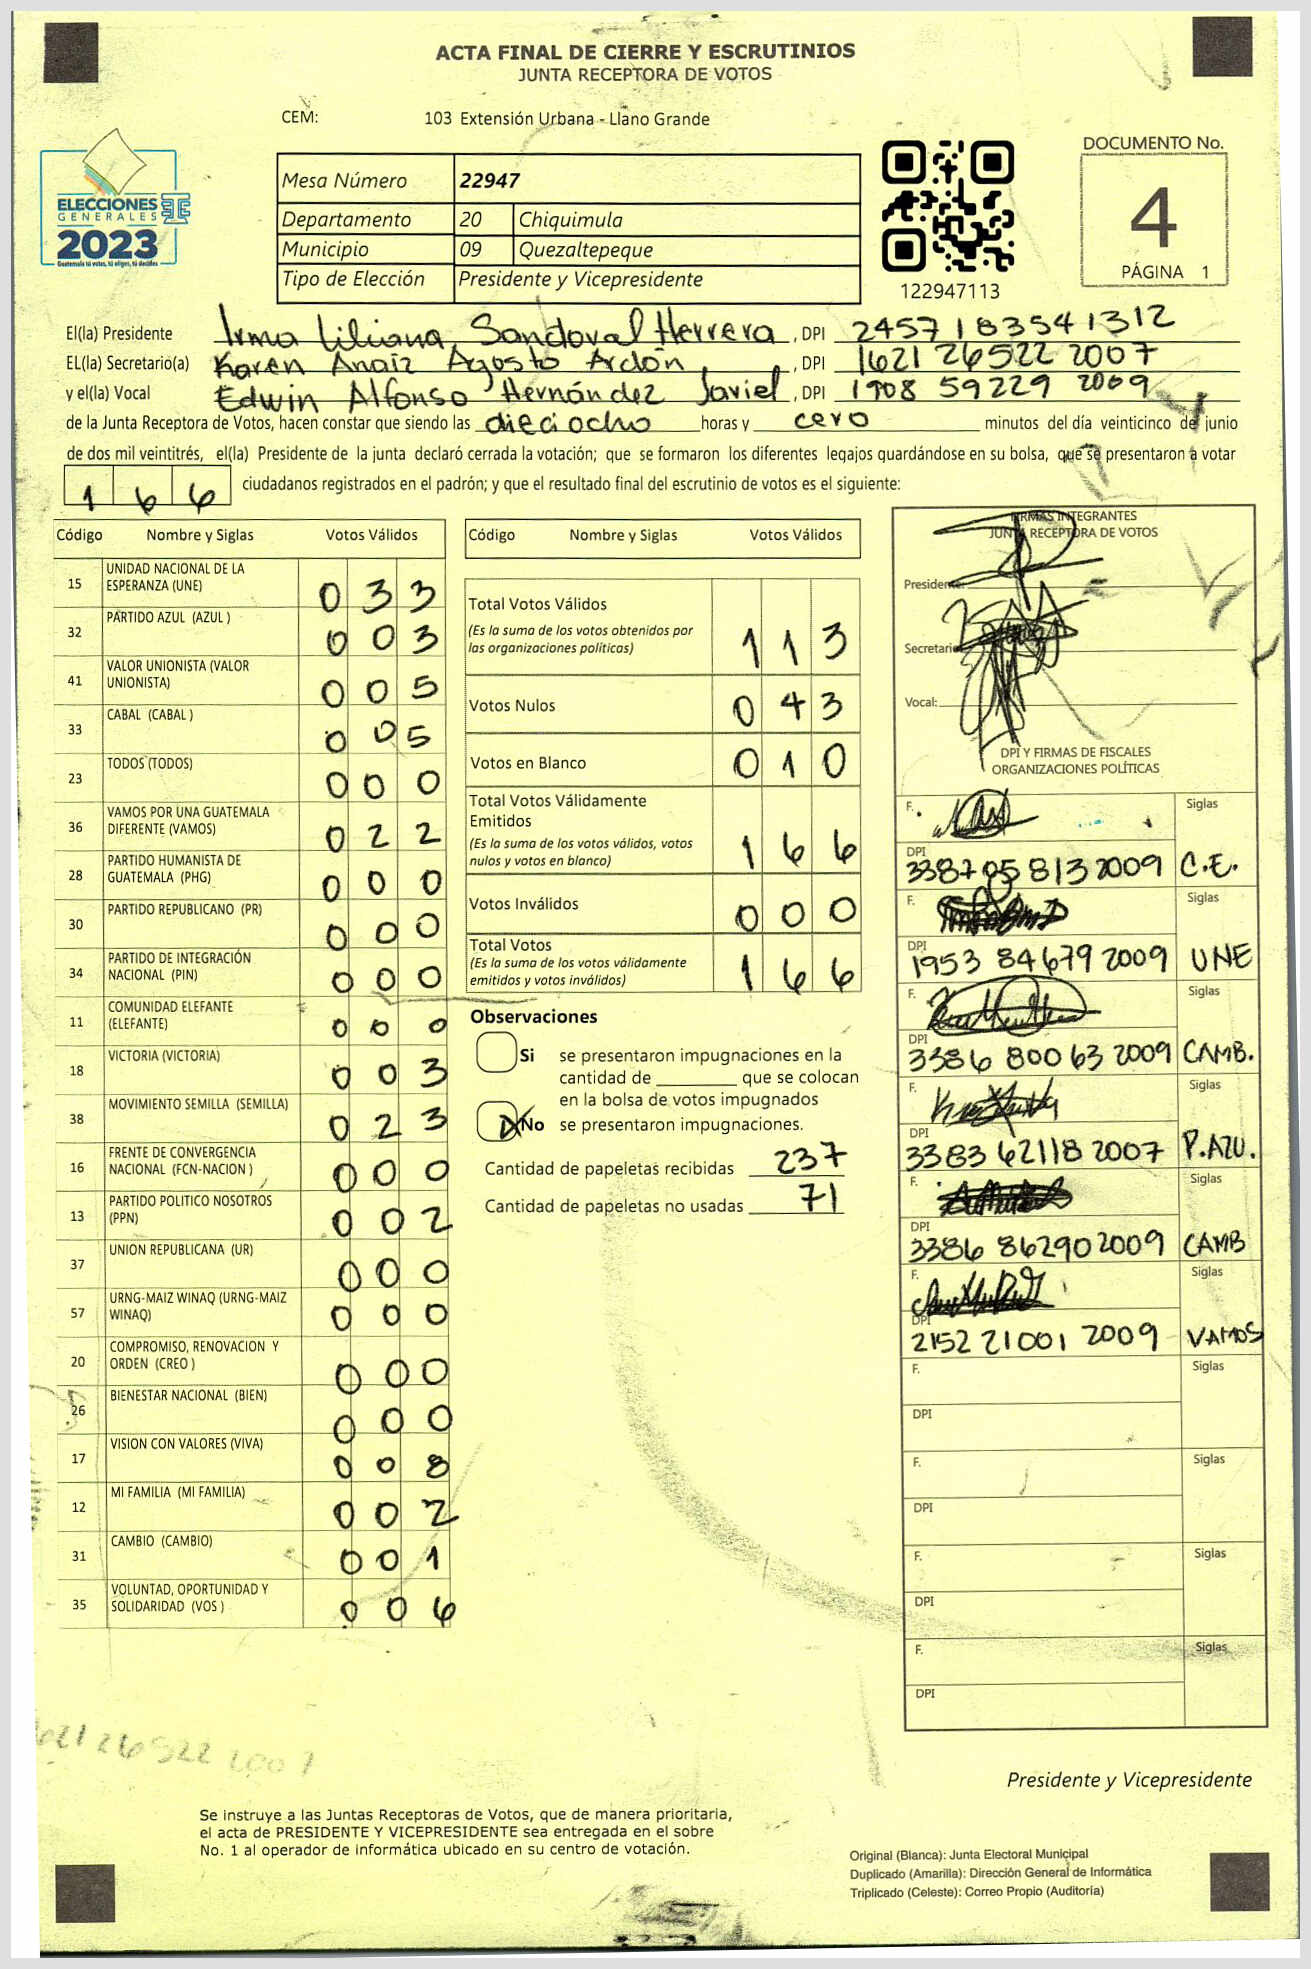 ACTA FINAL DE CIERRE Y ESCRUTINIOS
JUNTA RECEPTORA DE VOTOS
CEM: 103 Extensión Urbana - Llano Grande
ELECCIONES
GENERALES
2023
Guatemala tú votas, tú eliges, tú decides
Mesa Número 22947
Departamento 20 Chiquimula
Municipio 09 Quezaltepeque
Tipo de Elección Presidente y Vicepresidente
122947113
DOCUMENTO No.
4
PÁGINA 1
El(la) Presidente Irma Liliana Sandoval Herrera, DPI 2457183541312
EL(la) Secretario(a) Karen Anaiz Agosto Ardón, DPI 1621 26522 2007
y el(la) Vocal Edwin Alfonso Hernández Javiel, DPI 1908 59229 2009
de la Junta Receptora de Votos, hacen constar que siendo las dieciocho horas y cero minutos del día veinticinco de junio
de dos mil veintitrés, el(la) Presidente de la junta declaró cerrada la votación; que se formaron los diferentes legajos guardándose en su bolsa, que se presentaron a votar
166 ciudadanos registrados en el padrón; y que el resultado final del escrutinio de votos es el siguiente:
Código Nombre y Siglas Votos Válidos
15 UNIDAD NACIONAL DE LA
ESPERANZA (UNE) 033
32 PARTIDO AZUL (AZUL ) 003
41 VALOR UNIONISTA (VALOR
UNIONISTA) 005
33 CABAL (CABAL ) 005
23 TODOS (TODOS) 000
36 VAMOS POR UNA GUATEMALA
DIFERENTE (VAMOS) 022
28 PARTIDO HUMANISTA DE
GUATEMALA (PHG) 000
30 PARTIDO REPUBLICANO (PR) 000
34 PARTIDO DE INTEGRACIÓN
NACIONAL (PIN) 000
11 COMUNIDAD ELEFANTE
(ELEFANTE) 000
18 VICTORIA (VICTORIA) 003
38 MOVIMIENTO SEMILLA (SEMILLA) 023
16 FRENTE DE CONVERGENCIA
NACIONAL (FCN-NACION ) 000
13 PARTIDO POLITICO NOSOTROS
(PPN) 002
37 UNION REPUBLICANA (UR) 000
57 URNG-MAIZ WINAQ (URNG-MAIZ
WINAQ) 000
20 COMPROMISO, RENOVACION Y
ORDEN (CREO ) 000
26 BIENESTAR NACIONAL (BIEN) 000
17 VISION CON VALORES (VIVA) 008
12 MI FAMILIA (MI FAMILIA) 002
31 CAMBIO (CAMBIO) 001
35 VOLUNTAD, OPORTUNIDAD Y
SOLIDARIDAD (VOS ) 006
Código Nombre y Siglas Votos Válidos
Total Votos Válidos
(Es la suma de los votos obtenidos por
las organizaciones políticas) 113
Votos Nulos 043
Votos en Blanco 010
Total Votos Válidamente
Emitidos
(Es la suma de los votos válidos, votos
nulos y votos en blanco) 166
Votos Inválidos 000
Total Votos
(Es la suma de los votos válidamente
emitidos y votos inválidos) 166
Observaciones
Si se presentaron impugnaciones en la
cantidad de ________ que se colocan
en la bolsa de votos impugnados
X No se presentaron impugnaciones.
Cantidad de papeletas recibidas 237
Cantidad de papeletas no usadas 71
FIRMAS INTEGRANTES
JUNTA RECEPTORA DE VOTOS
Presidente:
Secretario
Vocal:
DPI Y FIRMAS DE FISCALES
ORGANIZACIONES POLÍTICAS
F. Siglas
DPI
3387 05813 2009 C.E.
F. Siglas
DPI
1953 84679 2009 UNE
F. Siglas
DPI
3386 80063 2009 CAMB.
F. Siglas
DPI
3383 62118 2007 P.AZU.
F. Siglas
DPI
3386 86290 2009 CAMB
F. Siglas
DPI
2152 21001 2009 VAMOS
F. Siglas
DPI
F. Siglas
DPI
F. Siglas
DPI
F. Siglas
DPI
621 26522 2007
Presidente y Vicepresidente
Se instruye a las Juntas Receptoras de Votos, que de manera prioritaria,
el acta de PRESIDENTE Y VICEPRESIDENTE sea entregada en el sobre
No. 1 al operador de informática ubicado en su centro de votación.
Original (Blanca): Junta Electoral Municipal
Duplicado (Amarilla): Dirección General de Informática
Triplicado (Celeste): Correo Propio (Auditoría)